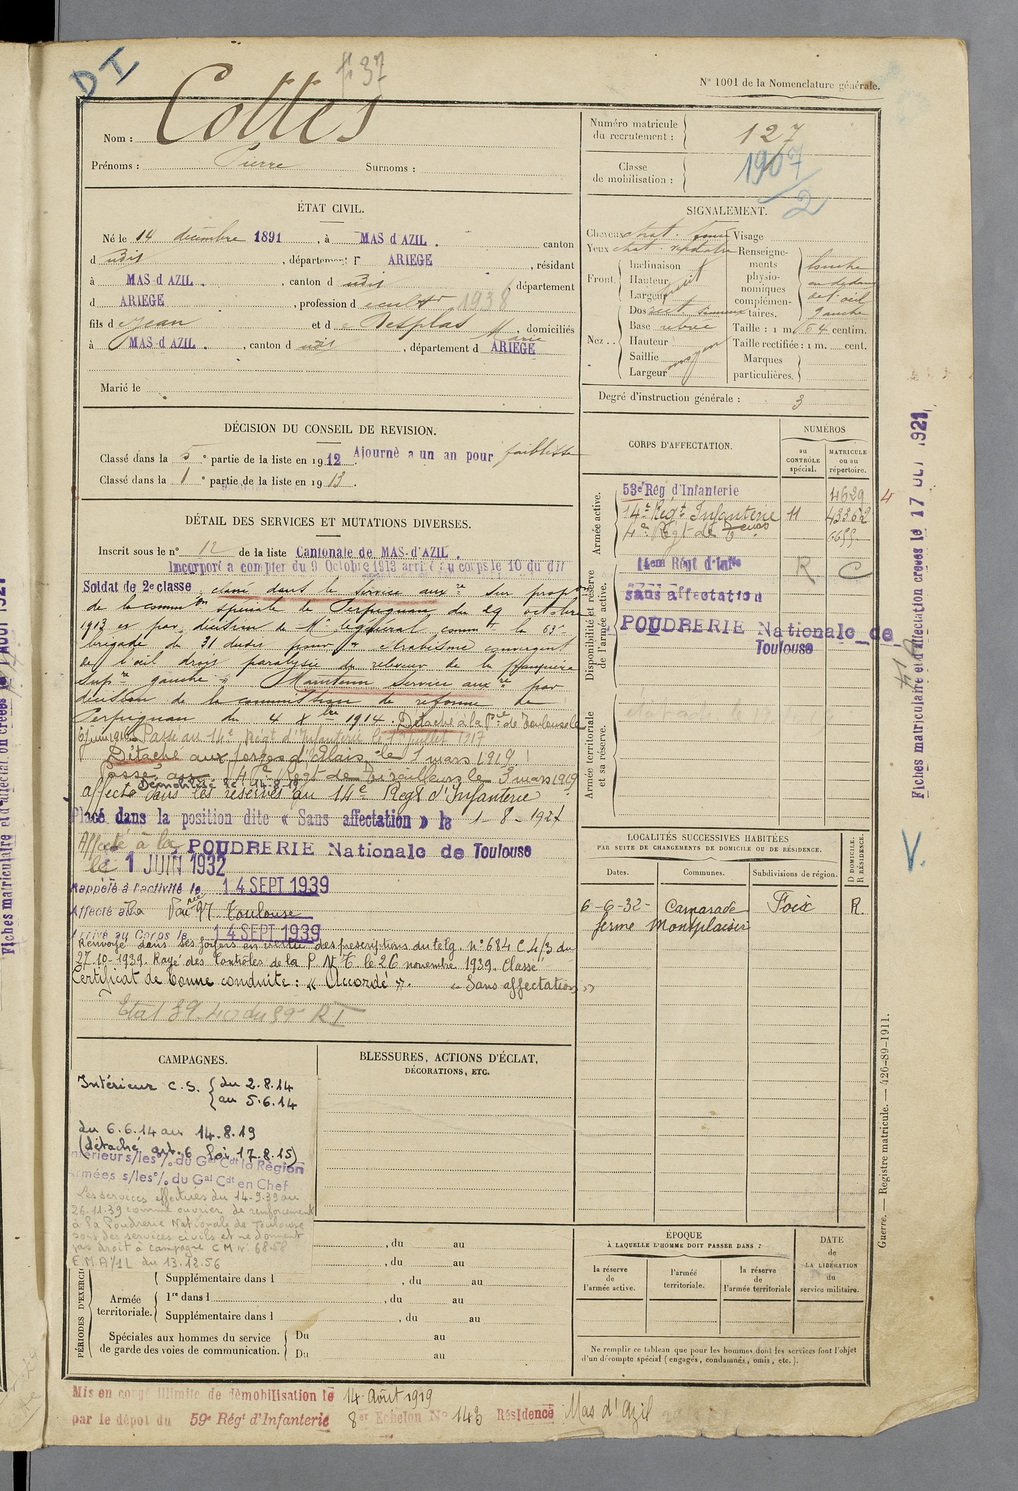 DI
f 37
N° 1001 de la Nomenclature générale.
Nom : Cottes
Prénoms : Pierre Surnoms :
Numéro matricule du recrutement : 127
Classe de mobilisation : 1907/2
ÉTAT CIVIL.
Né le 14 décembre 1891, à MAS d AZIL. canton
d udis, département d ARIEGE, résidant
à MAS d AZIL., canton d udis, département
d ARIEGE, profession d 1938
fils d e Jean et d e Desplas Marie, domiciliés
à MAS d AZIL., canton d udis, département d ARIEGE
Marié le
SIGNALEMENT.
Cheveux chat. foncé Visage
Yeux chat.
Front. Inclinaison
Hauteur
Largeur
Nez. Dos rect. sinueux
Base
Hauteur
Saillie
Largeur moyen
Renseignements physionomiques complémentaires. louche en dedans de l'œil gauche
Taille : 1 m. 64 centim.
Taille rectifiée : 1 m. cent.
Marques particulières.
Degré d'instruction générale : 3
DÉCISION DU CONSEIL DE REVISION.
Classé dans la 5e partie de la liste en 1912. Ajourné a un an pour faiblesse
Classé dans la 1e partie de la liste en 1913.
DÉTAIL DES SERVICES ET MUTATIONS DIVERSES.
Inscrit sous le n° 12 de la liste Cantonale de MAS-d'AZIL.
Incorporé a compter du 9 Octobre 1913 arrivé au corps le 10 du dit
Soldat de 2e classe, classé dans le service aux.re sur propon
de la common spéciale de Perpignan du 29 octobre
1913 et par décision de Mr le général commt la 63e
brigade du 31 dudit pour « strabisme convergent
de l'œil droit paralysie du releveur de la paupière
supre gauche » Maintenu Service auxre par
décision de la commission de réforme de
Perpignan du 4 Xbre 1914. Détaché à la Pie de Toulouse le
6 juin 1916 Passé au 14e Régt d'Infanterie le 1 juillet 1917
Détaché aux forges d'Alais le 1 mars 1919.
Passé au 4e Régt de Tirailleurs le 3 mars 1919
Démobilisé le 14-8-19
affecté dans les réserves au 14e Régt d'Infanterie
Placé dans la position dite « Sans affectation » le 1-8-1921
Affecté à la POUDRERIE Nationale de Toulouse
le 1 JUIN 1932
Rappelé à l'activité le 14 SEPT 1939
Affecté à la Toulouse
Arrivé au Corps le 14 SEPT 1939
Renvoyé dans ses foyers en vertu des prescriptions du télg. n° 684 C 4/3 du
27-10-1939. Rayé des Contrôles de la P.N.T. le 26 novembre 1939. Classé
Certificat de bonne conduite : « Accordé ». « Sans affectation »
Etat 39-40 du 59e RI
CORPS D'AFFECTATION.
NUMÉROS
au CONTRÔLE spécial.
MATRICULE ou au répertoire.
Armée active.
53e Rég d'Infanterie 4629
14e Régt Infanterie 11 43362
4e Régt de Tirailleurs
Disponibilité et réserve de l'armée active.
14em Régt d'Inftie R C
sans affectation
POUDRERIE Nationale de Toulouse
Armée territoriale et sa réserve.
LOCALITÉS SUCCESSIVES HABITÉES
PAR SUITE DE CHANGEMENTS DE DOMICILE OU DE RÉSIDENCE.
Dates. Communes. Subdivisions de région. D DOMICILE. R RÉSIDENCE.
6-6-32- Camarade Foix R.
ferme Montplaisir
CAMPAGNES.
Intérieur C.S. { du 2.8.14
{ au 5.6.14
du 6.6.14 au 14.8.19
(détaché art. 6 loi 17.8.15)
Intérieur s/les o/ du Gal Cdt la Région
Armées s/les o/ du Gal Cdt en Chef
Les services effectués du 14-9-39 au
26-11-39 comme ouvrier de renforcement
à la Poudrerie Nationale de Toulouse
sont des services civils et ne donnent
pas droit à campagne CM n° 6858
E.M.A/1L du 13.12.56
BLESSURES, ACTIONS D'ÉCLAT,
DÉCORATIONS, ETC.
PÉRIODES D'EXERCICES
, du au
, du au
Supplémentaire dans l , du au
Armée territoriale. 1re dans l , du au
Supplémentaire dans l , du au
Spéciales aux hommes du service de garde des voies de communication. Du au
Du au
ÉPOQUE
À LAQUELLE L'HOMME DOIT PASSER DANS :
la réserve de l'armée active.
l'armée territoriale.
la réserve de l'armée territoriale
DATE DE LA LIBÉRATION du service militaire.
Ne remplir ce tableau que pour les hommes dont les services font l'objet
d'un décompte spécial (engagés, condamnés, omis, etc.).
Mis en congé illimité de démobilisation le 14 Août 1919
par le dépôt du 59e Régt d'Infanterie 8er Echelon No 143 Résidence Mas d'Azil
Fiches matriculaire et d'affection créées le 17 OCT 1921
V.
Guerre. — Registre matricule. — 426-89-1911.
Fiches matriculaire et d'affectation créées